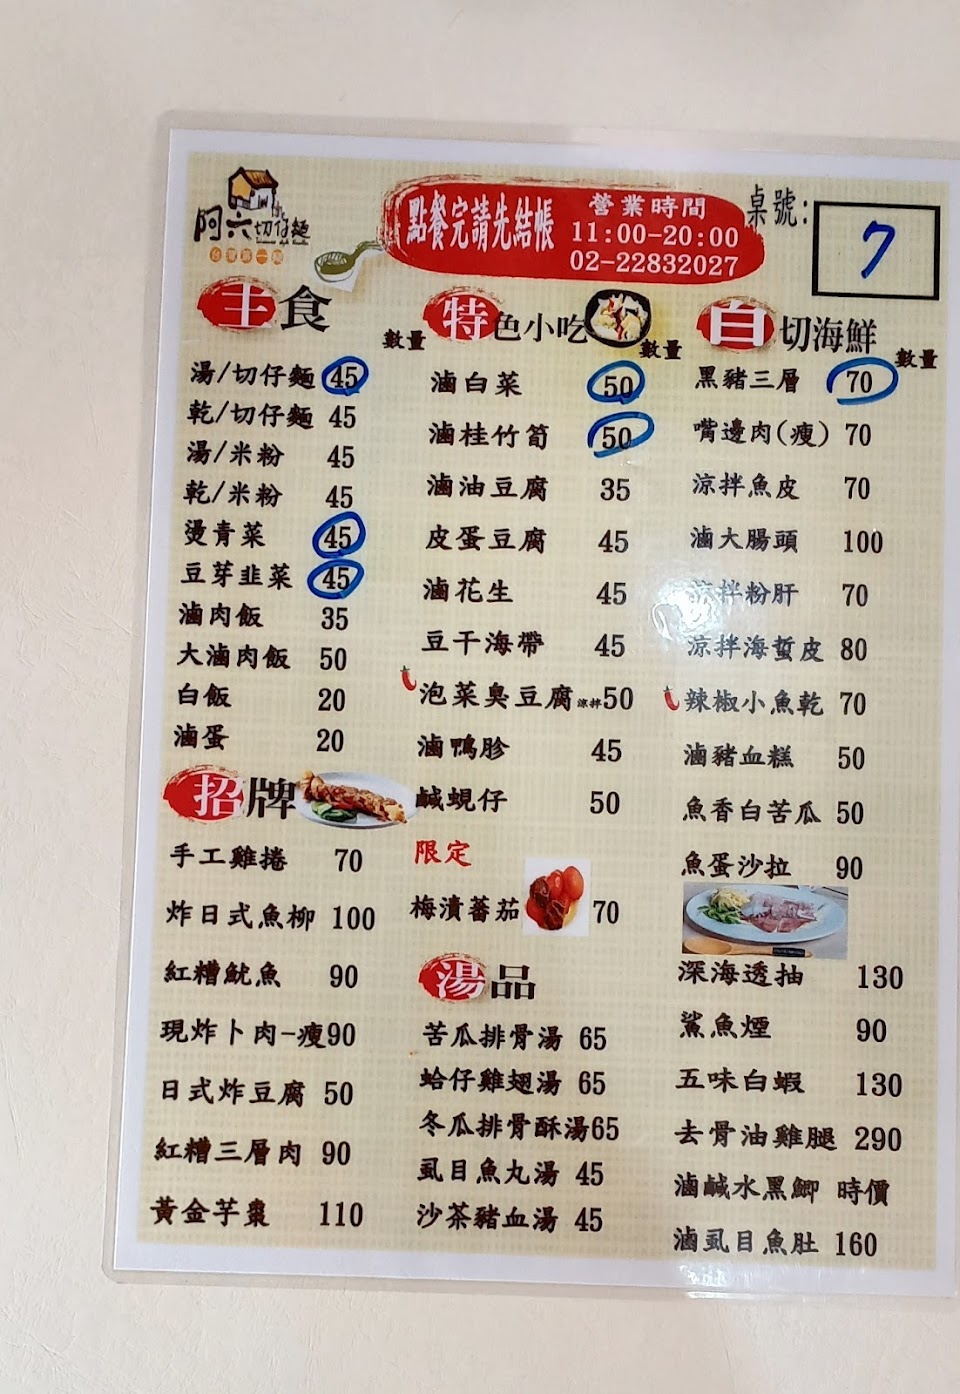 阿六切仔麵
台灣第一麵
點餐完請先結帳
營業時間
11:00-20:00
02-22832027
桌號:
7
主食
數量
湯/切仔麵 45
乾/切仔麵 45
湯/米粉 45
乾/米粉 45
燙青菜 45
豆芽韭菜 45
滷肉飯 35
大滷肉飯 50
白飯 20
滷蛋 20
招牌
手工雞捲 70
炸日式魚柳 100
紅糟魷魚 90
現炸卜肉-瘦90
日式炸豆腐 50
紅糟三層肉 90
黃金芋棗 110
特色小吃
數量
滷白菜 50
滷桂竹筍 50
滷油豆腐 35
皮蛋豆腐 45
滷花生 45
豆干海帶 45
泡菜臭豆腐涼拌50
滷鴨胗 45
鹹蜆仔 50
限定
梅漬蕃茄 70
湯品
苦瓜排骨湯 65
蛤仔雞翅湯 65
冬瓜排骨酥湯65
虱目魚丸湯 45
沙茶豬血湯 45
自切海鮮
數量
黑豬三層 70
嘴邊肉(瘦) 70
涼拌魚皮 70
滷大腸頭 100
涼拌粉肝 70
涼拌海蜇皮 80
辣椒小魚乾 70
滷豬血糕 50
魚香白苦瓜 50
魚蛋沙拉 90
深海透抽 130
鯊魚煙 90
五味白蝦 130
去骨油雞腿 290
滷鹹水黑鯽 時價
滷虱目魚肚 160